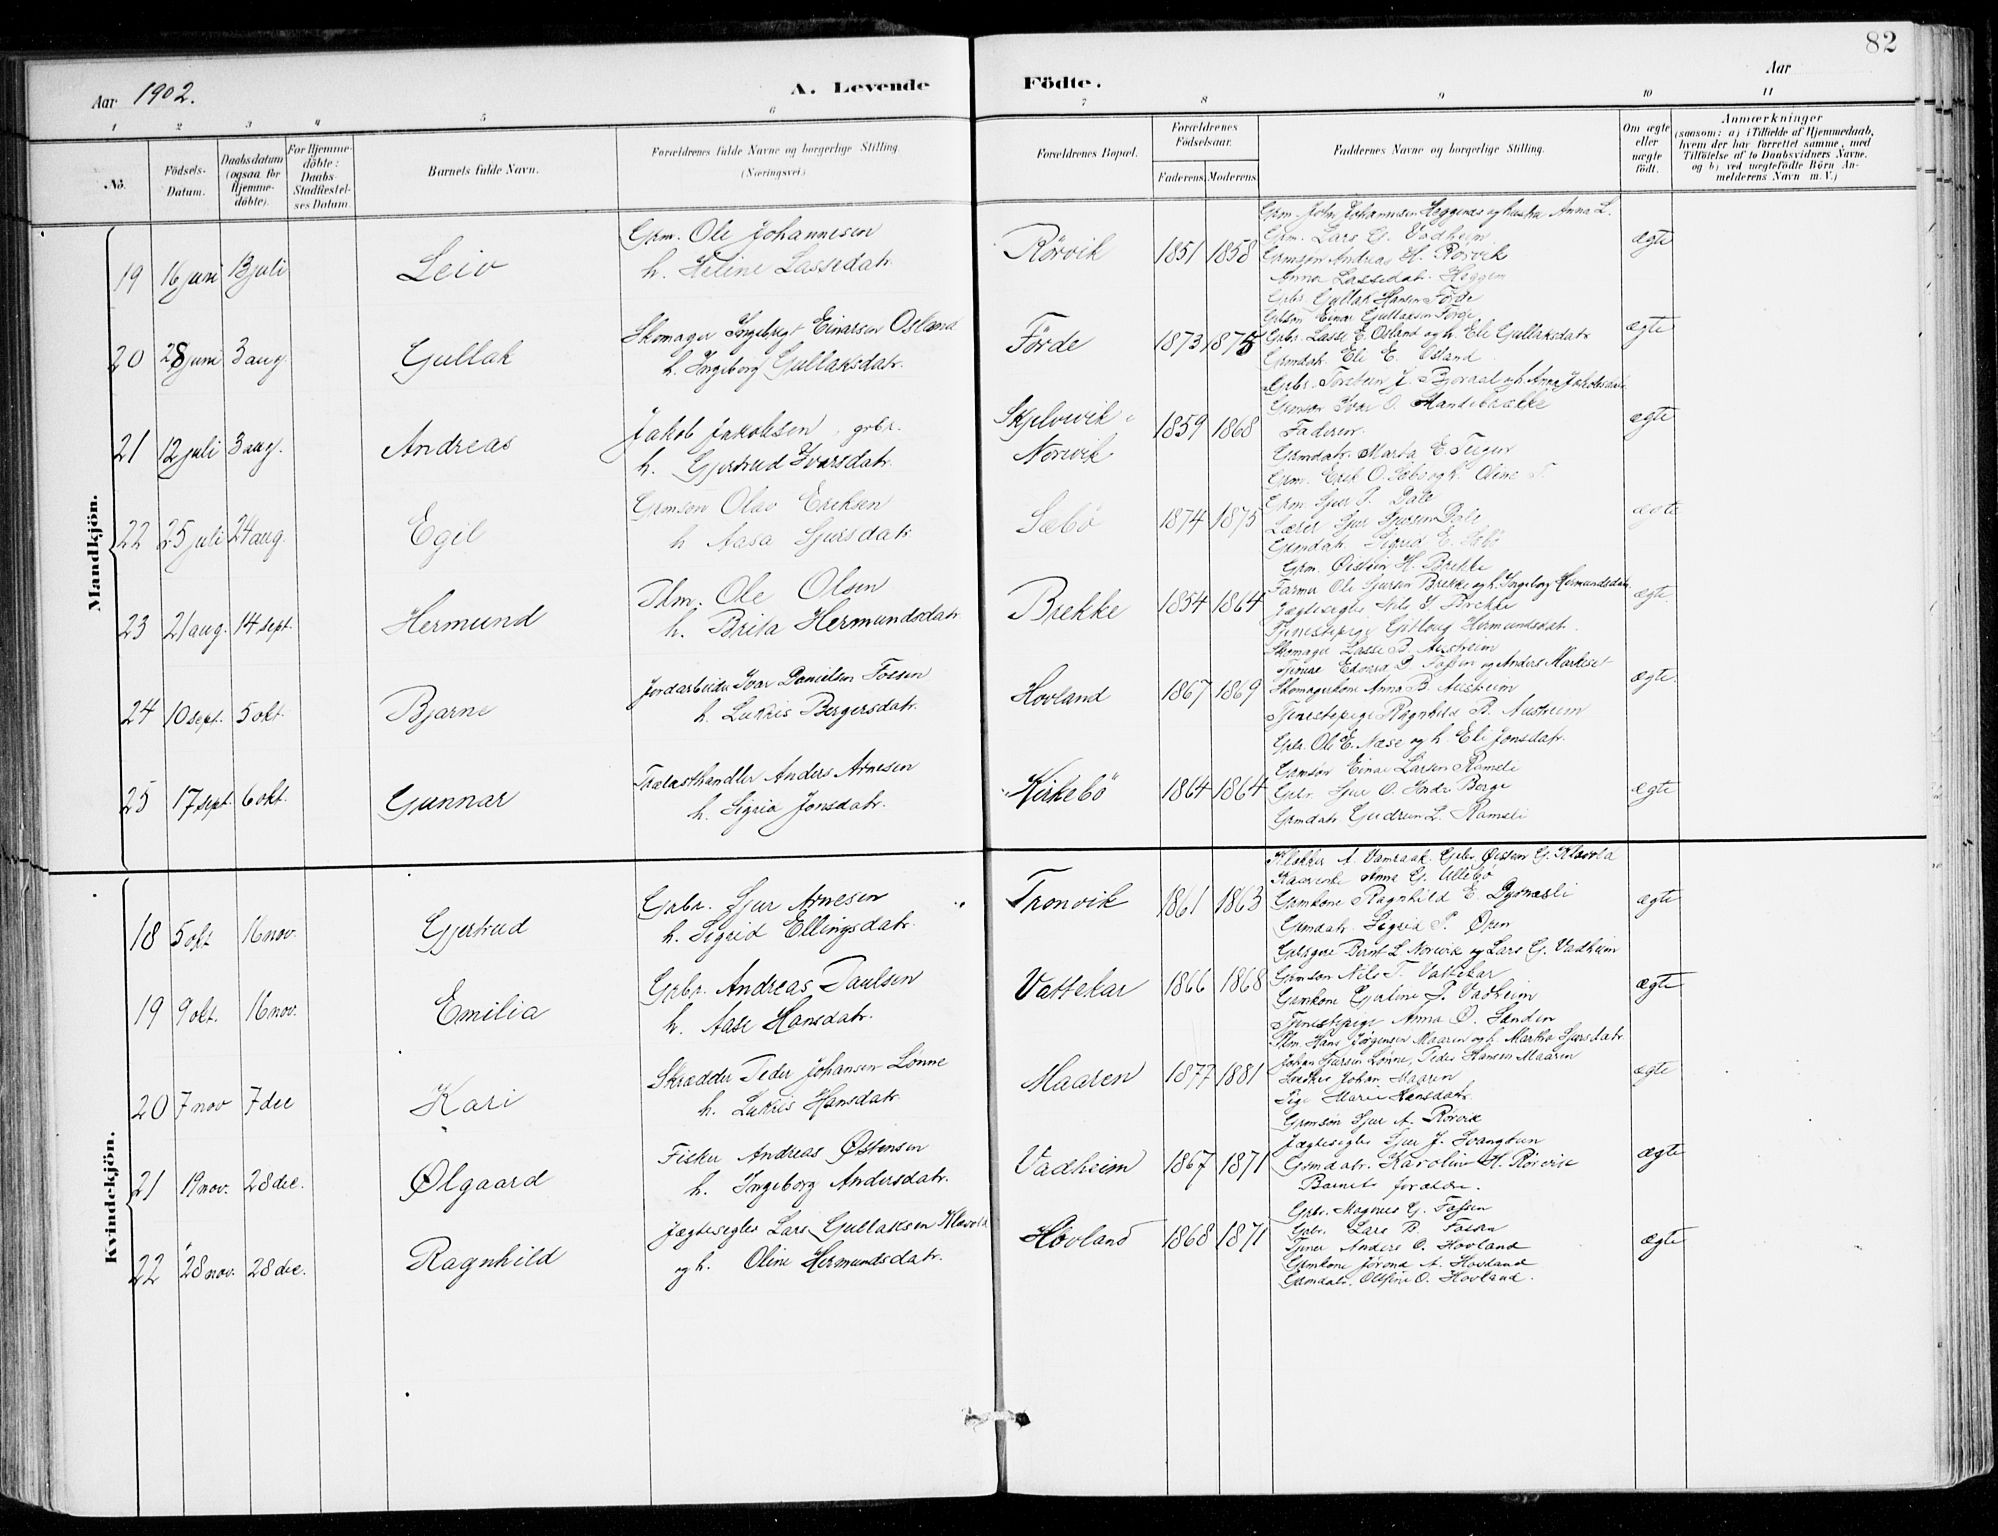 82
Aar 1902.
A. Levende Födte.
Aar
1 2 3 4 5 6 7 8 9 10 11
No.
Födsels-Datum.
Daabsdatum (ogsaa for Hjemmedöbte).
For Hjemmedöbte: Daabs-Stadfæstelses Datum.
Barnets fulde Navn.
Forældrenes fulde Navne og borgerlige Stilling.
(Næringsvei.)
Forældrenes Bopæl.
Forældrenes Födselsaar.
Faderens. Moderens.
Faddernes Navne og borgerlige Stilling.
Om ægte eller uægte födt.
Anmærkninger
(saasom: a) i Tilfælde af Hjemmedaab, hvem der har forrettet samme, med Tilföielse af to Daabsvidners Navne, og b) ved uægtefödte Börn Anmelderens Navn m. V.)
Mandkjön.
19 16 juni 13 juli Leiv
Grm. Ole Johannesen
h. Heline Lassedatr.
Rørvik 1851 1858
Grm. John Johannesen Heggenæs og hustru Anna L.
Grm. Lars G. Vadheim
Grmsøn Andreas H. Rørvik
Anna Lassedatr. Heggen
ægte
20 28 juni 3 aug Gullak
Skomager Ingebrigt Einarsen Osland
h. Ingeborg Gullaksdatr.
Førde 1873 1875
Grbr. Gullak Hansen Førde
Einar Gullaksen Førde
Grbr. Lasse E. Osland og h. Eli Gullaksdatr
Grmdatr. Eli E. Osland
ægte
21 12 juli 3 aug. Andreas
Jakob Jakobsen, grbr.
h. Gjertrud Ivarsdatr.
Norevik 1859 1868
Grbr. Torstein J. og h. Anna Jakobsdatr
Grmsøn Ivar O.
Faderen.
Grmdatr. Marta E.
ægte
22 25 juli 24 aug. Egil
Grmsøn Olav Eriksen
h. Aasa Sjursdatr.
Sæbø 1874 1875
Grm. Erik O. Sæbø og h. Oline T.
Grm. Sjur S. Dale
Lærer Sjur Sjursen Dale
Grmdatr. Sigrid E. Sæbø
ægte
23 21 aug. 14 sept. Hermund
Plm. Ole Olsen
h. Brita Hermundsdatr
Brekke 1854 1864
Grm. Øistein H. Brekke
Farmer Ole Sjursen Brekke og h. Ingeborg Hermundsdatr
Jægtesegler Nils S. Brekke
Tjenestepige Gitlaug Hermundsdat.
ægte
24 10 sept. 5 okt. Bjarne
Jordarbeider Ivar Danielsen Fossen
h. Lukris Bergersdatr.
Hovland 1867 1869
Skomager Lasse B. Austreim
Edvard D. Fossen og Anders
Skomagerkone Anna B. Austreim
Tjenestepige Ragnhild B. Austreim
ægte
25 17 sept. 6 okt. Gunnar
Trælasthandler Anders Arnesen
h. Sigrid Jonsdatr.
Kirkebö 1864 1864
Grbr. Ole E. Næse og h. Eli Jonsdatr.
Grmsøn Einar Larsen Rameli
Grbr. Sjur O. Indre Berge
Grmdatr Gudrun L. Rameli
ægte
Kvindekjön.
18 5 okt 16 nov. Gjertrud
Grbr. Sjur Arnesen
h. Sigrid Ellingsdatr.
Tronvik 1861 1863
Klokker A. Vamraak. Grbr. Øistein G. Klævold
Anna G. Ullebø
Grmkone Ragnhild E.
Grmdatr. Sigrid P. Øren
ægte
19 9 okt. 16 nov. Emilia
Grbr. Andreas Paulsen
h. Aase Hansdatr.
Vattekar 1866 1868
Bernt L. Norevik og Lars G. Vadheim
Grmsøn Nils T. Vattekar
Grmkone Gjertine P. Vadheim
Tjenestepige Anna O. Sanden
ægte
20 7 nov 7 dec Kari
Skrædder Peder Johansen Lønne
h. Lukris Hansdatr.
Maaren 1877 1881
Plm. Hans Jørgensen Maaren og h. Martha Sjursdatr
Johan Sjursen Lønne, Peder Hansen Maaren
Johan Maaren
Pige Marie Hansdatr.
ægte
21 19 nov. 28 dec. Ølgaard
Fisker Andreas Østensen
h. Ingeborg Andersdatr.
Vadheim 1867 1871
Grmsøn Sjur A. Rørvik
Jægtesegler Sjur J.
Grmdatr. Karolin H. Rørvik
Barnets forældre.
ægte
22 28 nov. 28 dec. Ragnhild
Jægtesegler Lars Gullaksen Klævold
og h. Oline Hermundsdatr.
Hovland 1868 1871
Grbr. Magnus G. Fossen
Grbr. Lars B. Fossen
Tjener Anders O. Hovland
Grmkone Jørond A. Hovland
Grmdatr. Olsine O. Hovland.
ægte